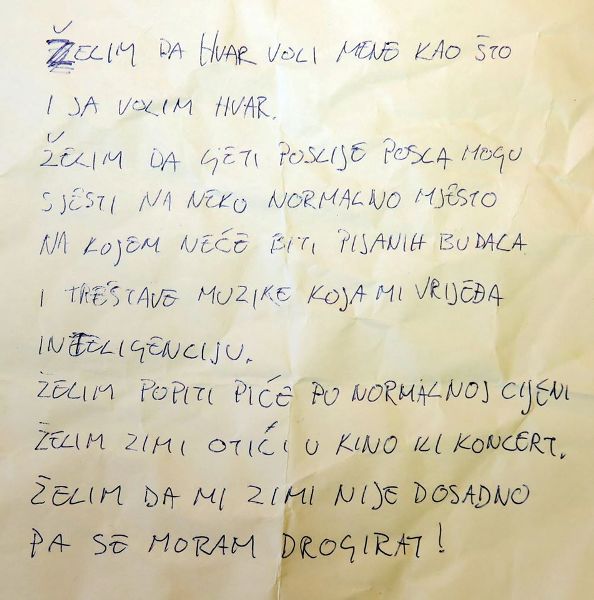 ŽELIM DA HVAR VOLI MENE KAO ŠTO
I JA VOLIM HVAR.
ŽELIM DA LJETI POSLIJE POSLA MOGU
SJESTI NA NEKO NORMALNO MJESTO
NA KOJEM NEĆE BITI PIJANIH BUDALA
I TREŠTAVE MUZIKE KOJA MI VRIJEĐA
INTELIGENCIJU.
ŽELIM POPITI PIĆE PO NORMALNOJ CIJENI
ŽELIM ZIMI OTIĆI U KINO ILI KONCERT.
ŽELIM DA MI ZIMI NIJE DOSADNO
PA SE MORAM DROGIRAT!